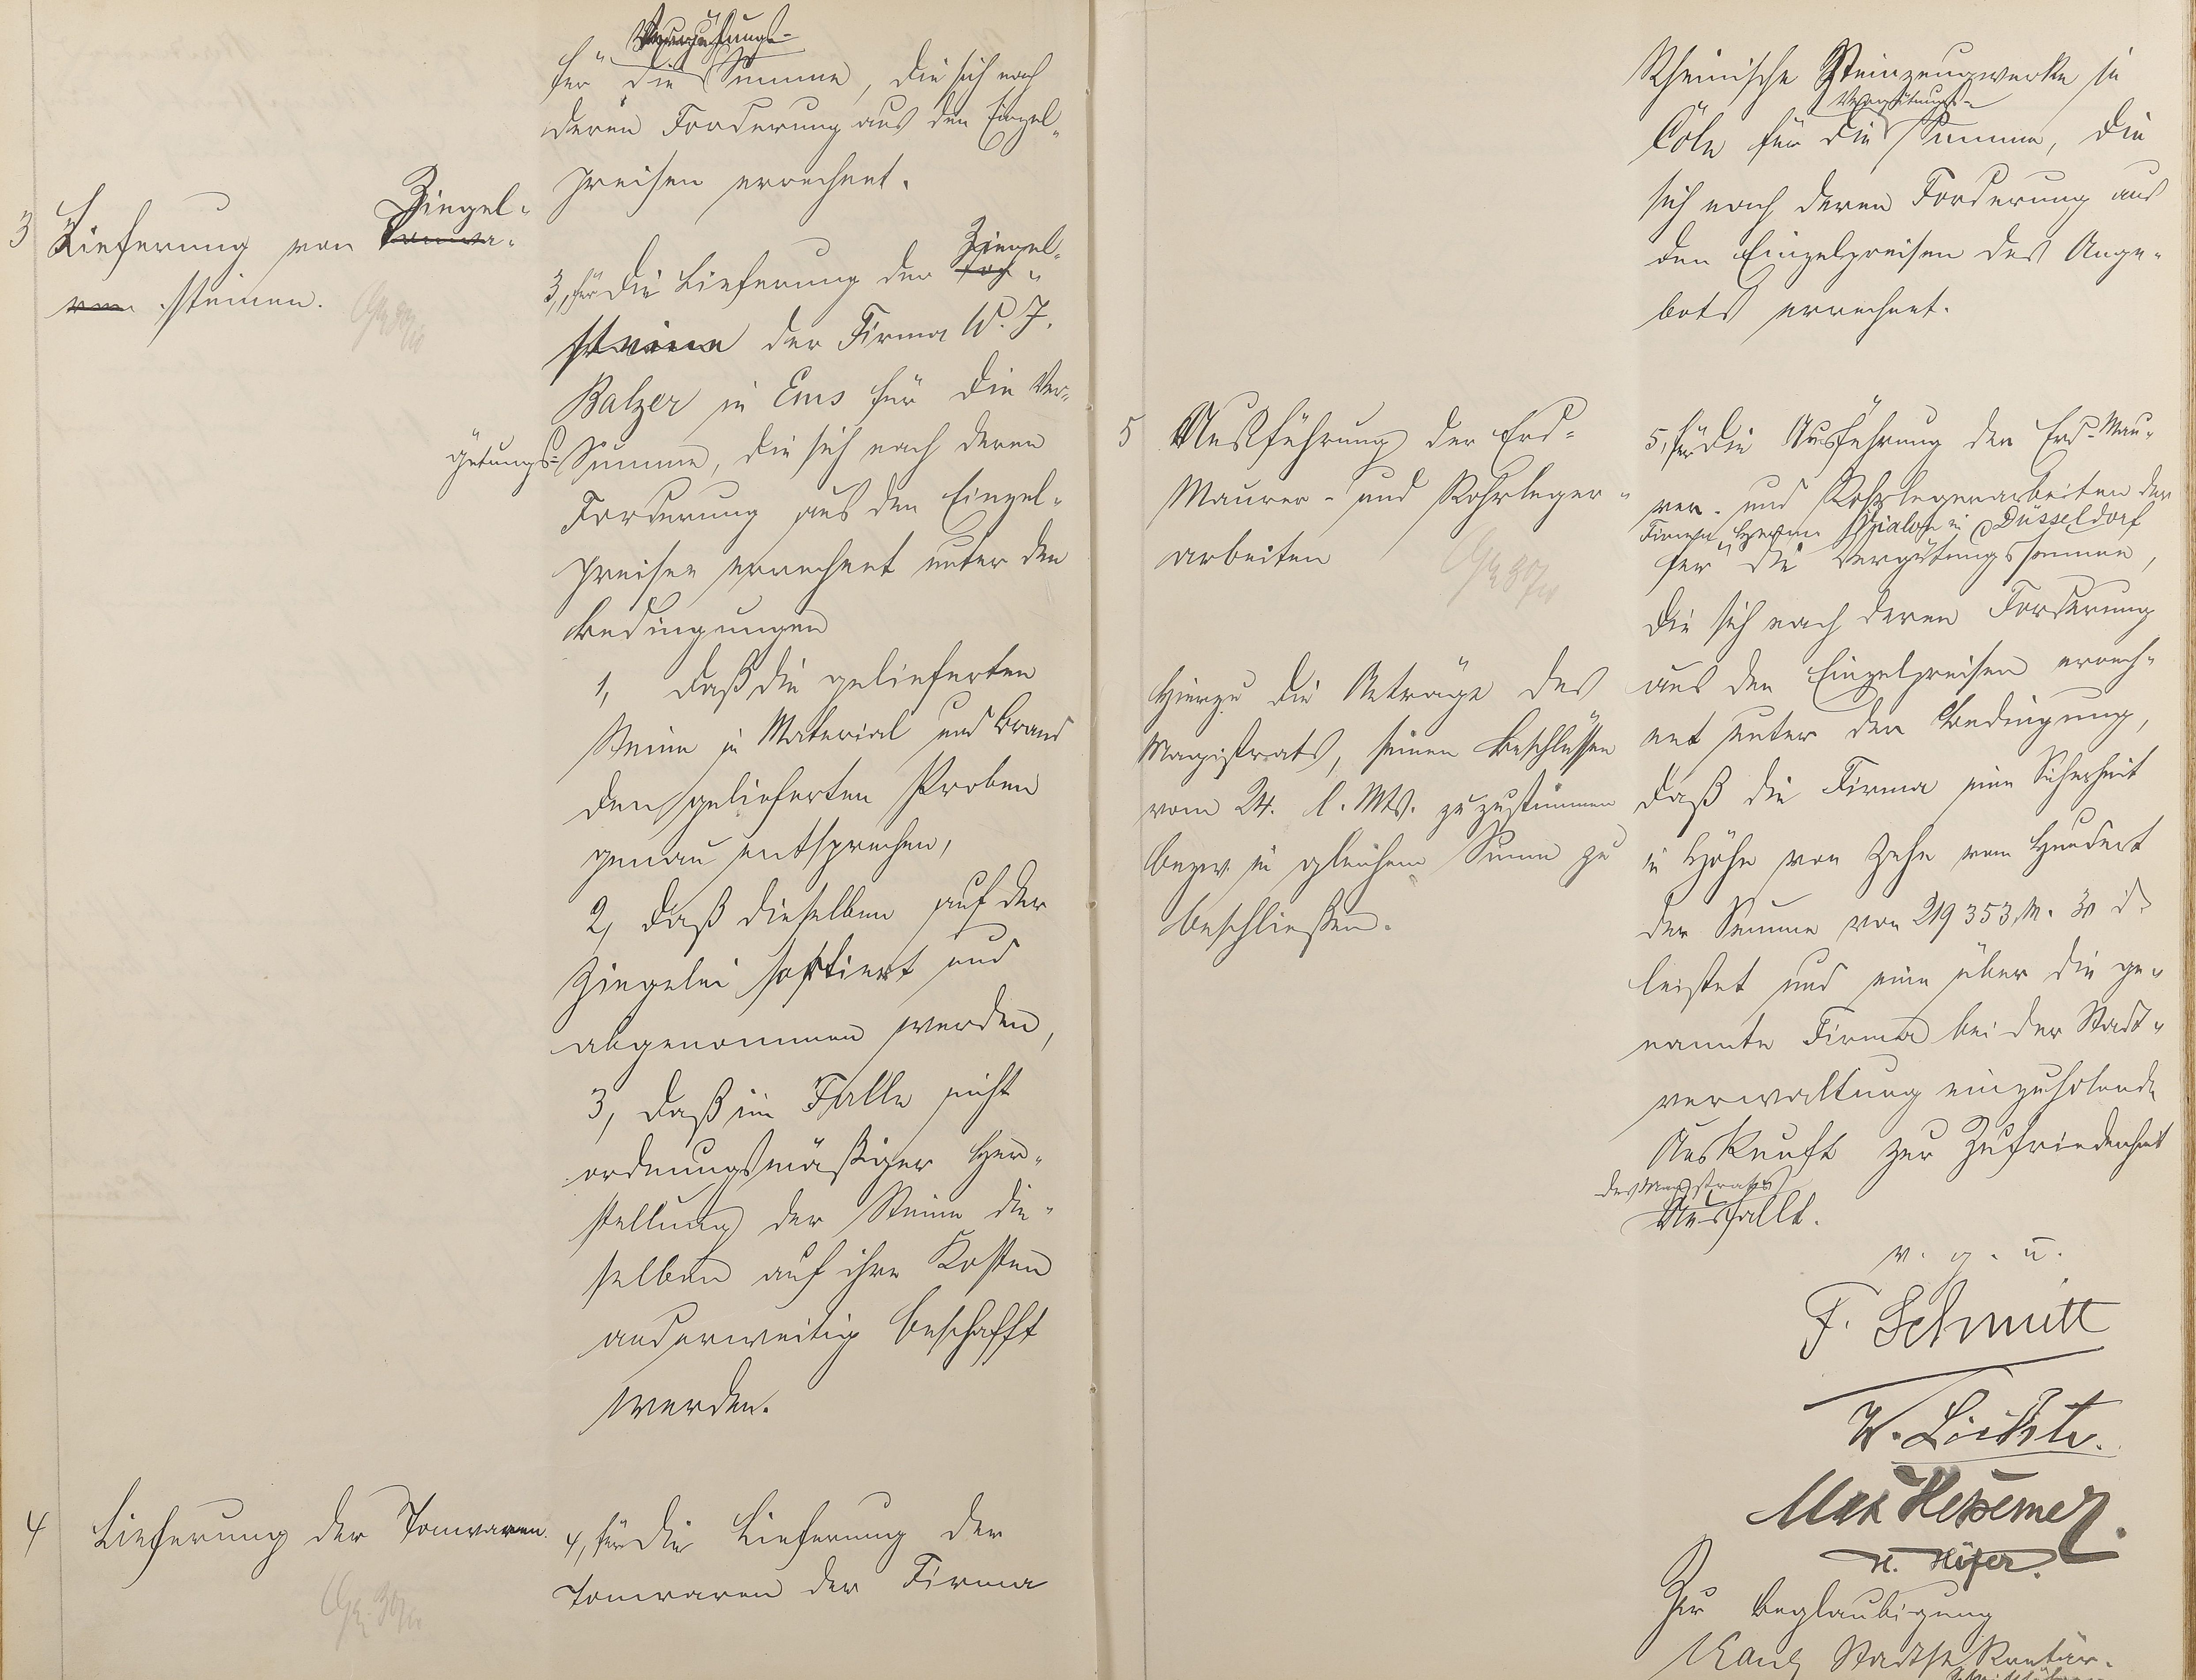 Vergütungs-
für die Summe, die sich nach
deren Forderung aus den Einzel-
preisen errechnet.
3 Lieferung von Tonwa-
Ziegel-
ren steinen.
Ziegel-
3, für die Lieferung der
steine der Firma W. J.
Balzer in Ems für die Ver-
gütungs-Summe, die sich nach deren
Forderung aus den Einzel-
preisen errechnet unter den
Bedingungen
1, daß die gelieferten
Steine in Material und Brand
den gelieferten Proben
genau entsprechen,
2, daß dieselben auf der
Ziegelei sortiert und
abgenommen werden,
3, daß im Falle nicht
ordnungsmäßiger Her-
stellung der Steine die-
selben auf ihre Kosten
anderweitig beschafft
werden.
4 Lieferung der Tonwaren.
4, für die Lieferung der
Tonwaren der Firma
Rheinische Steinzeugwerke in
Vergütungs-
Cöln für die Summe, die
sich nach deren Forderung aus
den Einzelpreisen des Ange-
bots errechnet.
5 Ausführung der Erd-
Maurer- und Rohrleger-
arbeiten
Hierzu die Anträge des
Magistrats, seinen Beschlüssen
vom 24. l. Mts. zuzustimmen
bezw. in gleichem Sinne zu
beschließen.
5, für die Ausführung der Erd- Mau-
rer- und Rohrlegerarbeiten der
Firma Hermann in Düsseldorf
für die Vergütungssumme,
die sich nach deren Forderung
aus den Einzelpreisen errech-
net unter der Bedingung,
daß die Firma eine Sicherheit
in Höhe von Zehn vom Hundert
der Summe von 219 353 M. 30 d.
leistet und eine über die ge-
nannte Firma bei der Stadt-
verwaltung einzuholende
Auskunft zur Zufriedenheit
des Magistrats
Ausfällt.
v. g. u.
F. Schmitt
Max Hessemer
H. Höfer.
Zur Beglaubigung
Kaul Stadtsekretär.